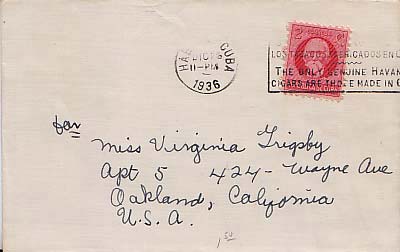 HA CUBA
DIC
11-PM
1936
2
LOS TABACOS
THE ONLY GENUINE HAVAN
CIGARS ARE THOSE MADE IN C
Miss Virginia Trigsby
Apt 5 424- Wayne Ave
Oakland, California
U.S.A.